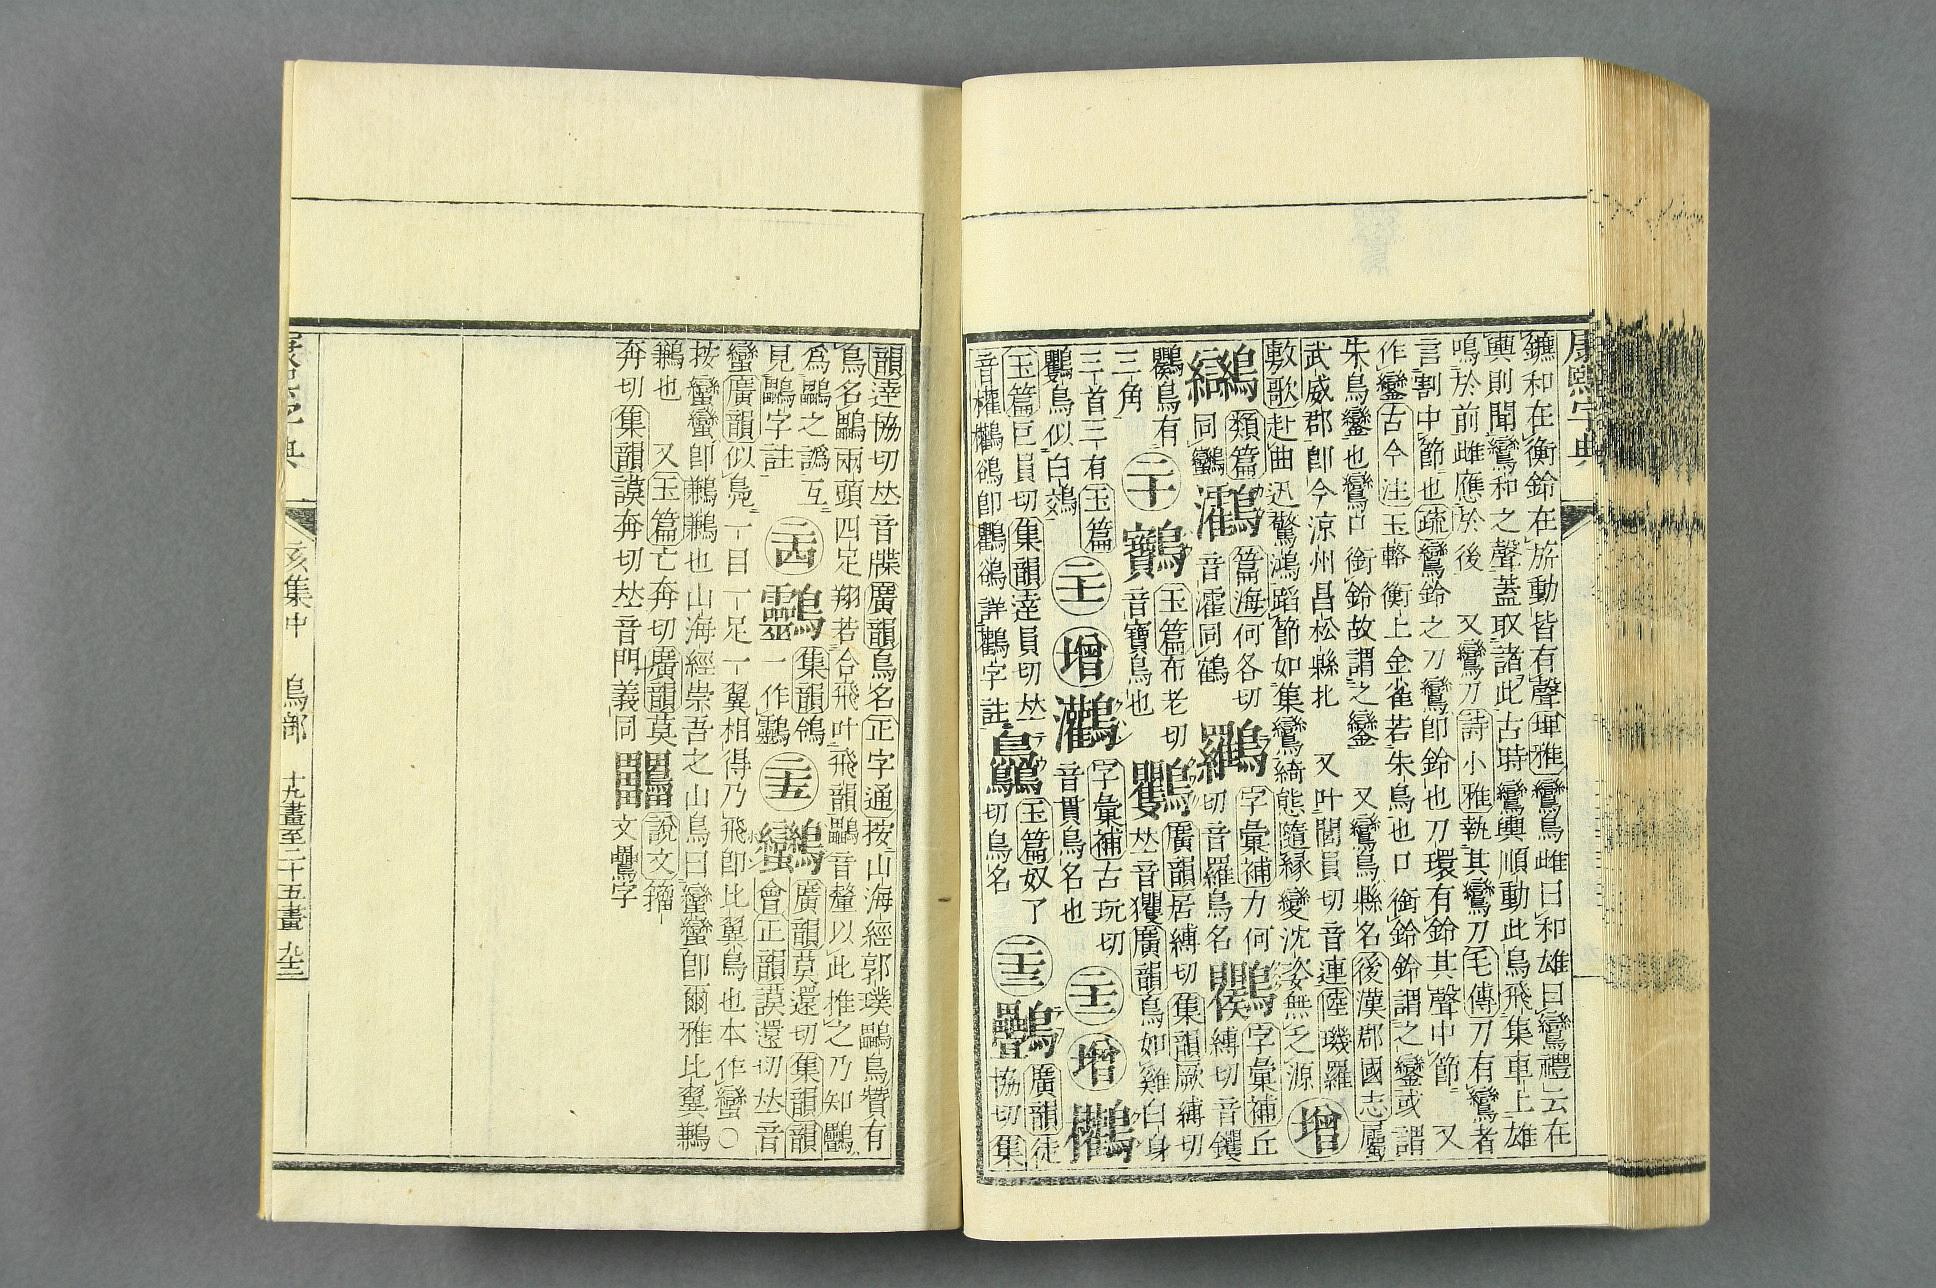 康熙字典
鑣和在衡鈴在旂動皆有聲埤雅鸞鳥雌曰和雄曰鸞禮云在
輿則聞鸞和之聲蓋取諸此古時鸞輿順動此鳥飛集車上雄
鳴於前雌應於後 又鸞刀詩小雅執其鸞刀毛傳刀有鸞者
言割中節也疏鸞鈴之刀鸞卽鈴也刀環有鈴其聲中節 又
作鑾古今注玉輅衡上金雀若朱鳥也口銜鈴鈴謂之鑾或謂
朱鳥鑾也鸞口銜鈴故謂之鑾 又鸞鳥縣名後漢郡國志屬
武威郡卽今涼州昌松縣北 又叶閭員切音連陸璣羅 增
敷歌赴曲迅驚鴻蹈節如集鸞綺態隨緣變沈姿無乏源
類篇 同鸞 篇海何各切 音㩴同鶴 字彙補力何切音羅鳥名 字彙補丘縛切音钁
鸚鳥有三角 二十 玉篇布老切音寶鳥也 廣韻居縛切集韻厥縛切𠀤音玃廣韻鳥如雞白身
三首三有玉篇 二十一 增 字彙補古玩切音貫鳥名也 二十二 增
玉篇巨員切集韻逵員切𠀤音權鸛鵒卽鸜鵒詳鸜字註 玉篇奴了切鳥名 二十三 廣韻徒協切集
韻達協切𠀤音牒廣韻鳥名正字通按山海經郭璞鸓鳥贊有
鳥名鸓兩頭四足翔若合飛叶飛韻鸓音釐以此推之乃知鸓
爲鸓之譌互見鸓字註 二十四 集韻鴒一作鸖 二十五 廣韻莫還切集韻韻會正韻謨還切𠀤音
蠻廣韻似鳧一目一足一翼相得乃飛卽比翼鳥也本作蠻○
按蠻蠻卽鶼鶼也山海經崇吾之山鳥曰蠻蠻卽爾雅比翼鶼
鶼也 又玉篇亡奔切廣韻莫奔切集韻謨奔切𠀤音門義同 說文籀文鷽字
康熙字典 亥集中 鳥部 十九畫至二十五畫 九十三